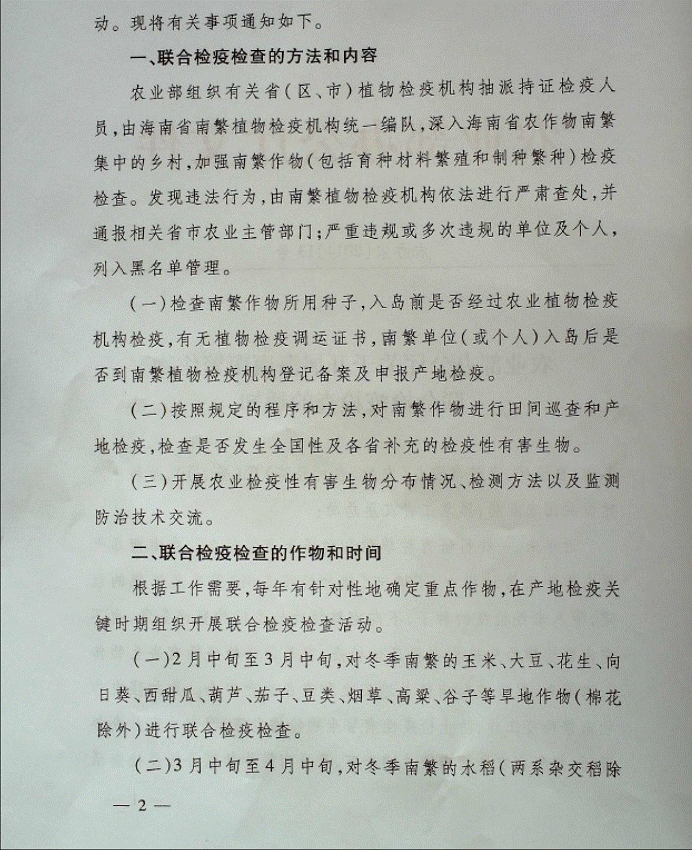 动。现将有关事项通知如下。
一、联合检疫检查的方法和内容
农业部组织有关省(区、市)植物检疫机构抽派持证检疫人
员,由海南省南繁植物检疫机构统一编队,深入海南省农作物南繁
集中的乡村,加强南繁作物(包括育种材料繁殖和制种繁种)检疫
检查。发现违法行为,由南繁植物检疫机构依法进行严肃查处,并
通报相关省市农业主管部门;严重违规或多次违规的单位及个人,
列入黑名单管理。
(一)检查南繁作物所用种子,入岛前是否经过农业植物检疫
机构检疫,有无植物检疫调运证书,南繁单位(或个人)入岛后是
否到南繁植物检疫机构登记备案及申报产地检疫。
(二)按照规定的程序和方法,对南繁作物进行田间巡查和产
地检疫,检查是否发生全国性及各省补充的检疫性有害生物。
(三)开展农业检疫性有害生物分布情况、检测方法以及监测
防治技术交流。
二、联合检疫检查的作物和时间
根据工作需要,每年有针对性地确定重点作物,在产地检疫关
键时期组织开展联合检疫检查活动。
(一)2月中旬至3月中旬,对冬季南繁的玉米、大豆、花生、向
日葵、西甜瓜、葫芦、茄子、豆类、烟草、高粱、谷子等旱地作物(棉花
除外)进行联合检疫检查。
(二)3月中旬至4月中旬,对冬季南繁的水稻(两系杂交稻除
— 2 —